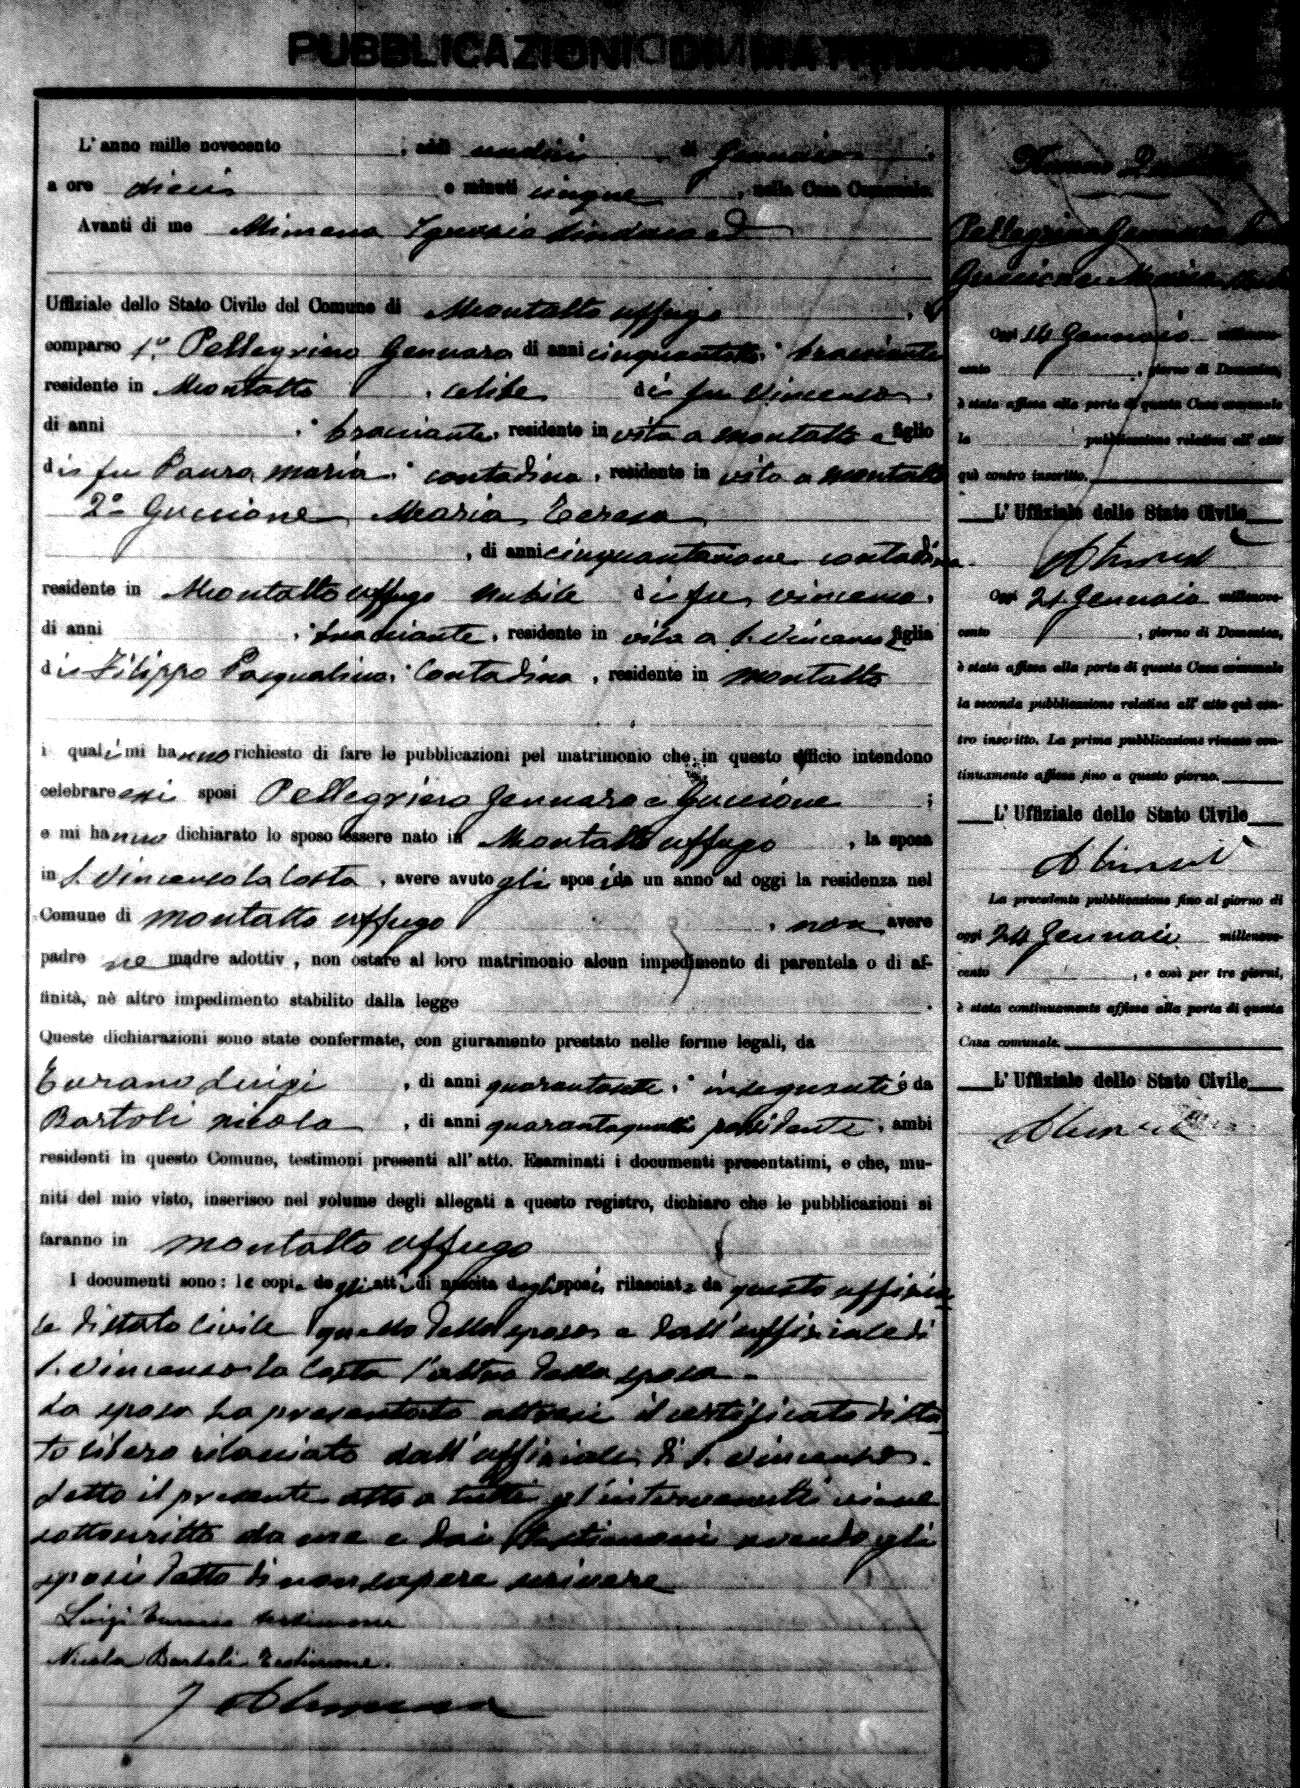 PUBBLICAZIONI DI MATRIMONIO
L'anno mille novecento , addì undici di Gennaio ,
a ore dieci e minuti cinque , nella Casa Comunale.
Avanti di me Ignazio Sindaco ed
Uffiziale dello Stato Civile del Comune di Montalto Uffugo ,
comparso 1º Pellegrino Gennaro di anni cinquantotto, bracciante
residente in Montalto , celibe di fu Vincenzo ,
di anni , bracciante, residente in vita a Montalto e figlio
di fu Maria, contadina, residente in vita a Montalto
2º Guccione Maria Teresa
, di anni cinquantanove contadina
residente in Montalto Uffugo nubile di fu Vincenzo,
di anni , bracciante, residente in vita a S. Vincenzo figlia
di Filippo Pasqualina, Contadina, residente in Montalto
i quali mi hanno richiesto di fare le pubblicazioni pel matrimonio che in questo ufficio intendono
celebrare essi sposi Pellegrino Gennaro e Guccione ;
e mi hanno dichiarato lo sposo essere nato in Montalto Uffugo , la sposa
in S. Vincenzo la Costa , avere avuto gli sposi da un anno ad oggi la residenza nel
Comune di Montalto Uffugo , non avere
padre ne madre adottiv , non ostare al loro matrimonio alcun impedimento di parentela o di af-
finità, nè altro impedimento stabilito dalla legge .
Queste dichiarazioni sono state confermate, con giuramento prestato nelle forme legali, da
Luigi , di anni e da
Bartoli Nicola , di anni quarantaquattro possidente, ambi
residenti in questo Comune, testimoni presenti all'atto. Esaminati i documenti presentatimi, e che, mu-
niti del mio visto, inserisco nel volume degli allegati a questo registro, dichiaro che le pubblicazioni si
faranno in Montalto Uffugo
I documenti sono: le copie degli atti di nascita degli sposi, rilasciate da questo uffizia
le di stato civile quello dello sposo e dall'uffiziale di
S. Vincenzo la Costa l'altro della sposa.
La sposa ha presentato altresi il certificato di sta
to libero rilasciato dall'uffiziale di S. Vincenzo.
Letto il presente atto a tutti gl'intervenuti viene
sottoscritto da me e dai testimoni avendo gli
sposi detto di non sapere scrivere
Luigi testimone
Nicola Bartoli Testimone.
Numero
Pellegrino Gennaro
Guccione Maria
Oggi 14 Gennaio millenove-
cento , giorno di Domenica,
è stata affissa alla porta di questa Casa comunale
la pubblicazione relativa all'atto
quì contro inscritto.
L'Uffiziale dello Stato Civile
Oggi 21 Gennaio millenove-
cento , giorno di Domenica,
è stata affissa alla porta di questa Casa comunale
la seconda pubblicazione relativa all'atto quì con-
tro inscritto. La prima pubblicazione rimase con-
tinuamente affissa fino a questo giorno.
L'Uffiziale dello Stato Civile
La precedente pubblicazione fino al giorno di
oggi 24 Gennaio millenove-
cento , e così per tre giorni,
è stata continuamente affissa alla porta di questa
Casa comunale.
L'Uffiziale dello Stato Civile